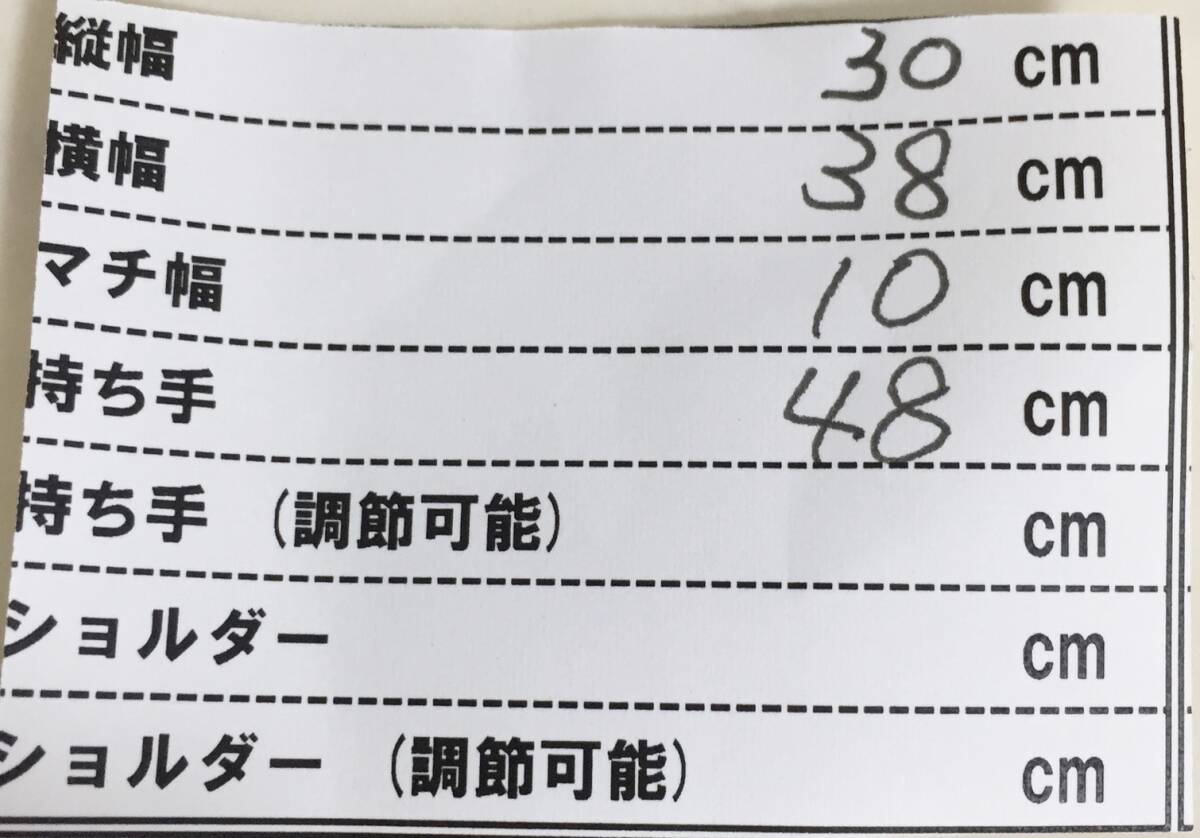 縦幅 30 cm
横幅 38 cm
マチ幅 10 cm
持ち手 48 cm
持ち手 (調節可能) cm
ショルダー cm
ショルダー (調節可能) cm